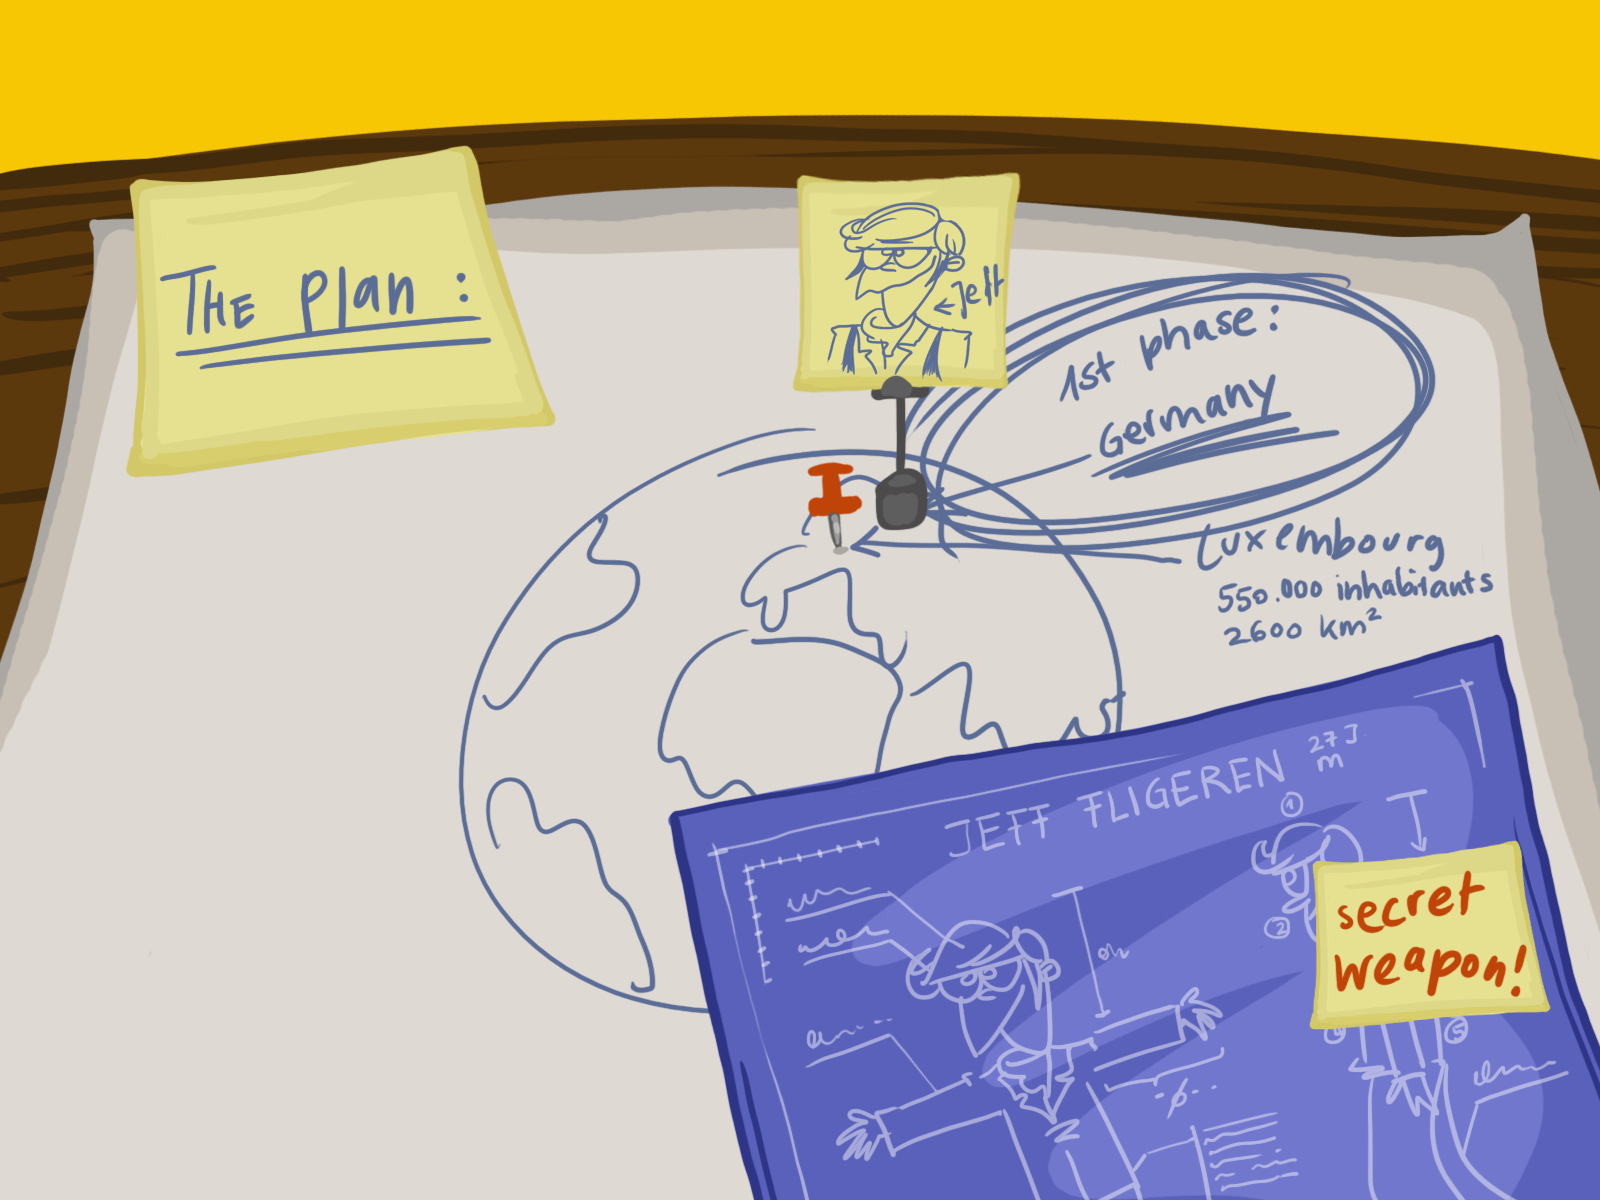 The plan:
Jeff
1st phase:
Germany
Luxembourg
550.000 inhabitants
2600 km²
JEFF FLIGEREN
27 J.
m
1
2
secret
weapon!
5